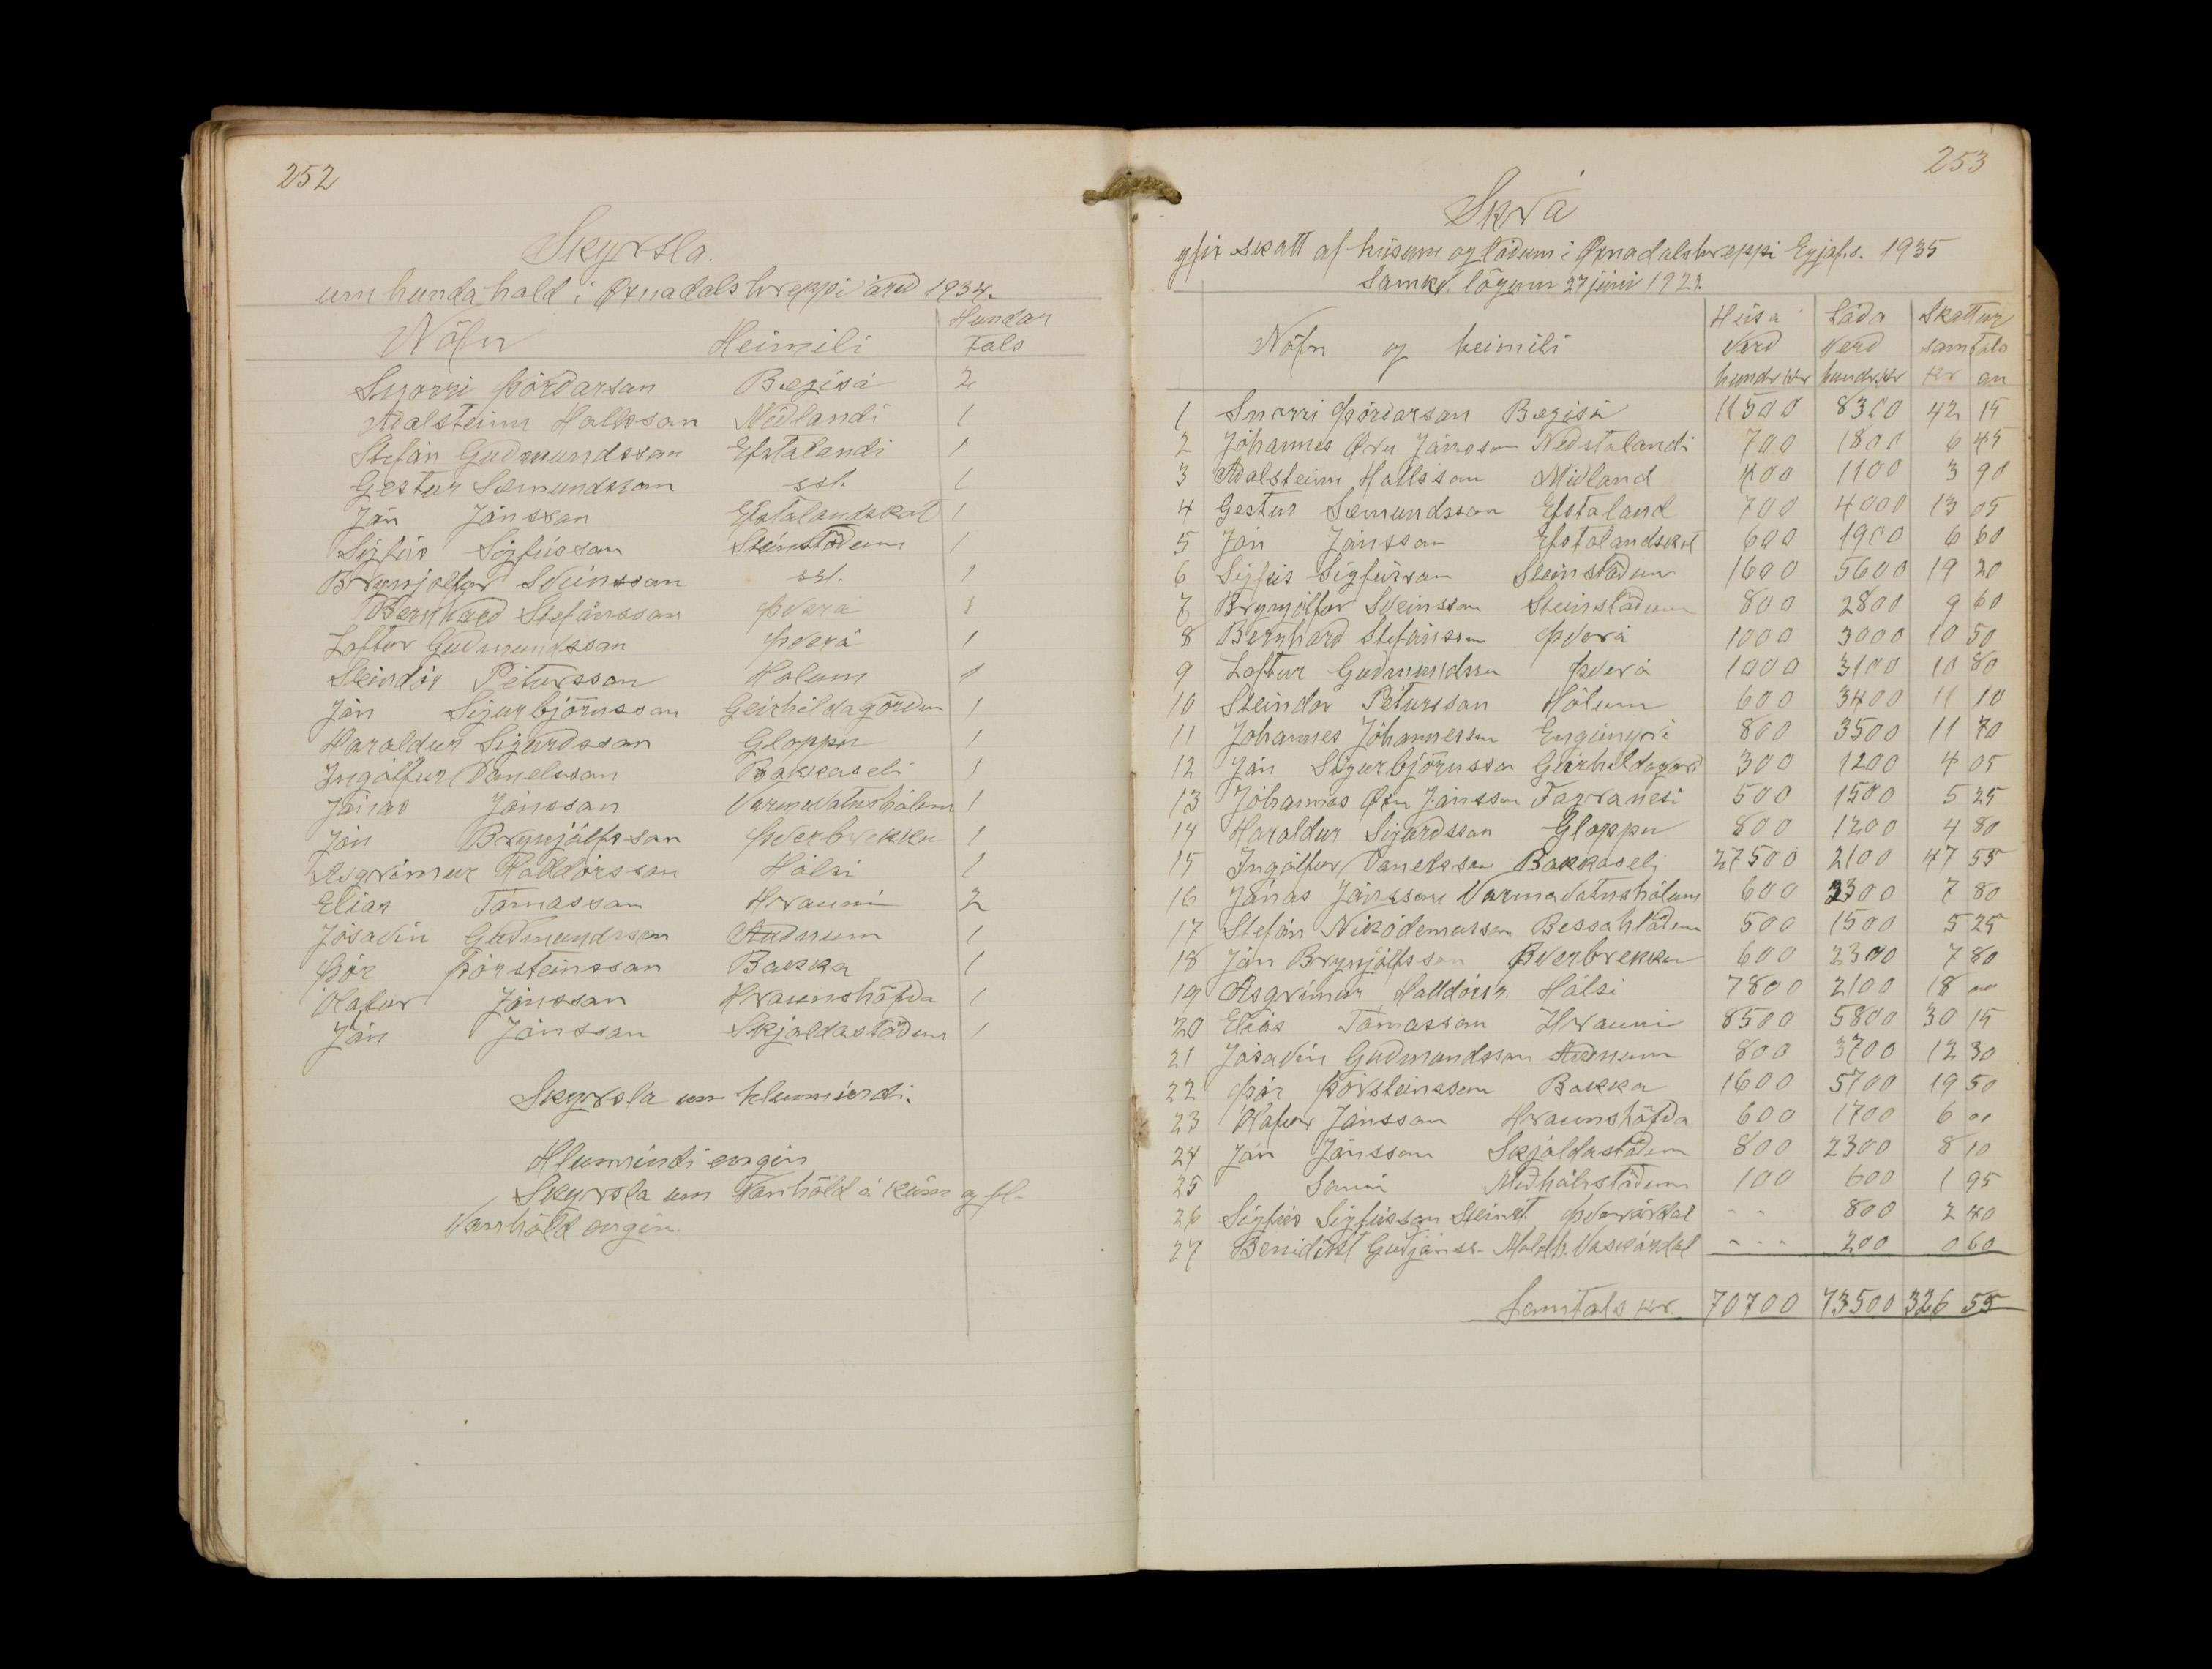 252
Skyrsla.
um hundahald i Øxnadalshreppi árið 1934.
Nöfn Heimili Hundar Tals
Snorri Þórðarson Bægisá 2
Aðalsteinn Hallsson Miðlandi 1
Stefán Guðmundsson Efstalandi 1
Gestur Sæmundsson sst. 1
Jón Jónsson Efstalandskot 1
Sigfús Sigfússon Steinstöðum 1
Brynjólfur Sveinsson sst. 1
Bernharð Stefánsson Þverá 1
Loftur Guðmundsson Þverá 1
Steindór Pétursson Hólum 1
Jón Sigurbjörnsson Geirhildagörðum 1
Haraldur Sigurðsson Gloppu 1
Ingólfur Danelsson Bakkaseli 1
Jónas Jónsson Varmavatnshólum 1
Jón Brynjólfsson Þverbrekku 1
Asgrímur Halldórsson Hálsi 1
Elías Tómasson Hrauni 2
Jósavín Guðmundsson Auðnum 1
Þór Þorsteinsson Bakka 1
Olafur Jónsson Hraunshöfða 1
Jón Jónsson Skjaldastöðum 1
Skyrsla um hlunnindi.
Hlunnindi engin
Skyrsla um Vanhöld á kúm og fl.
Vanhöld engin.
253
Skrá
yfir skatt af húsum og lóðum i Øxnadalshreppi Eyjafs. 1935
Samkv. lögum 27 júni 1921.
Nöfn og heimili Húsa Verð hundr kr Lóða Verð hundr kr Skattur samtals kr au
1 Snorri Þórðarson Bægisá 11500 8300 42 15
2 Jóhannes Örn Jónsson Neðstalandi 700 1800 6 45
3 Aðalsteinn Hallsson Miðland 400 1100 3 90
4 Gestur Sæmundsson Efstaland 700 4000 13 05
5 Jón Jónsson Efstalandskot 600 1900 6 60
6 Sigfús Sigfússon Steinstöðum 1600 5600 19 20
7 Brynjólfur Sveinsson Steinstöðum 800 2800 9 60
8 Bernharð Stefánsson Þverá 1000 3000 10 50
9 Loftur Guðmundsson Þverá 1000 3100 10 80
10 Steindór Pétursson Hólum 600 3400 11 10
11 Jóhannes Jóhannesson Engimyri 800 3500 11 70
12 Jón Sigurbjörnsson Geirhildagörð 300 1200 4 05
13 Jóhannes Örn Jónsson Fagranesi 500 1500 5 25
14 Haraldur Sigurðsson Gloppu 800 1200 4 80
15 Ingólfur Danelsson Bakkaseli 27500 2100 47 55
16 Jónas Jónsson Varmavatnshólum 600 2300 7 80
17 Stefán Nikódemusson Bessahlöðum 500 1500 5 25
18 Jón Brynjólfsson Þverbrekku 600 2300 7 80
19 Asgrímur Halldórss. Hálsi 7800 2100 18 00
20 Elías Tómasson Hrauni 8500 5800 30 15
21 Jósavín Guðmundsson Auðnum 800 3700 12 30
22 Þór Þorsteinsson Bakka 1600 5700 19 50
23 Olafur Jónsson Hraunshöfða 600 1700 6 00
24 Jón Jónsson Skjaldastöðum 800 2300 8 10
25 Sami Miðhálsstöðum 100 600 1 95
26 Sigfús Sigfússon Steinst. Þverárdal - - 800 2 40
27 Benidikt Guðjónss. Vaskárdal - - - 200 0 60
Samtals kr. 70700 73500 326 55